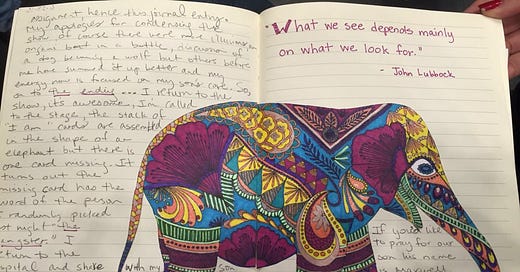 assignment, hence this journal entry.
My apologies for condensing the
show, of course there were more illusions,
organs in a bottle, discussion of
a dog becoming a wolf but others before
me have summed it up better and my
energy now is focused on my son's care. So,
on to the ending... I return to the
show, its awesome, I'm called
to the stage, the stack of
"I am" cards are assembled
in the shape of an
elephant but there is
one card missing. It
turns out the
missing card has the
word of the person
I randomly picked
last night - the
I
return to the
hospital and share with my son
"What we see depends mainly
on what we look for."
- John Lubbock
If you'd like
to pray for our
son his name
is